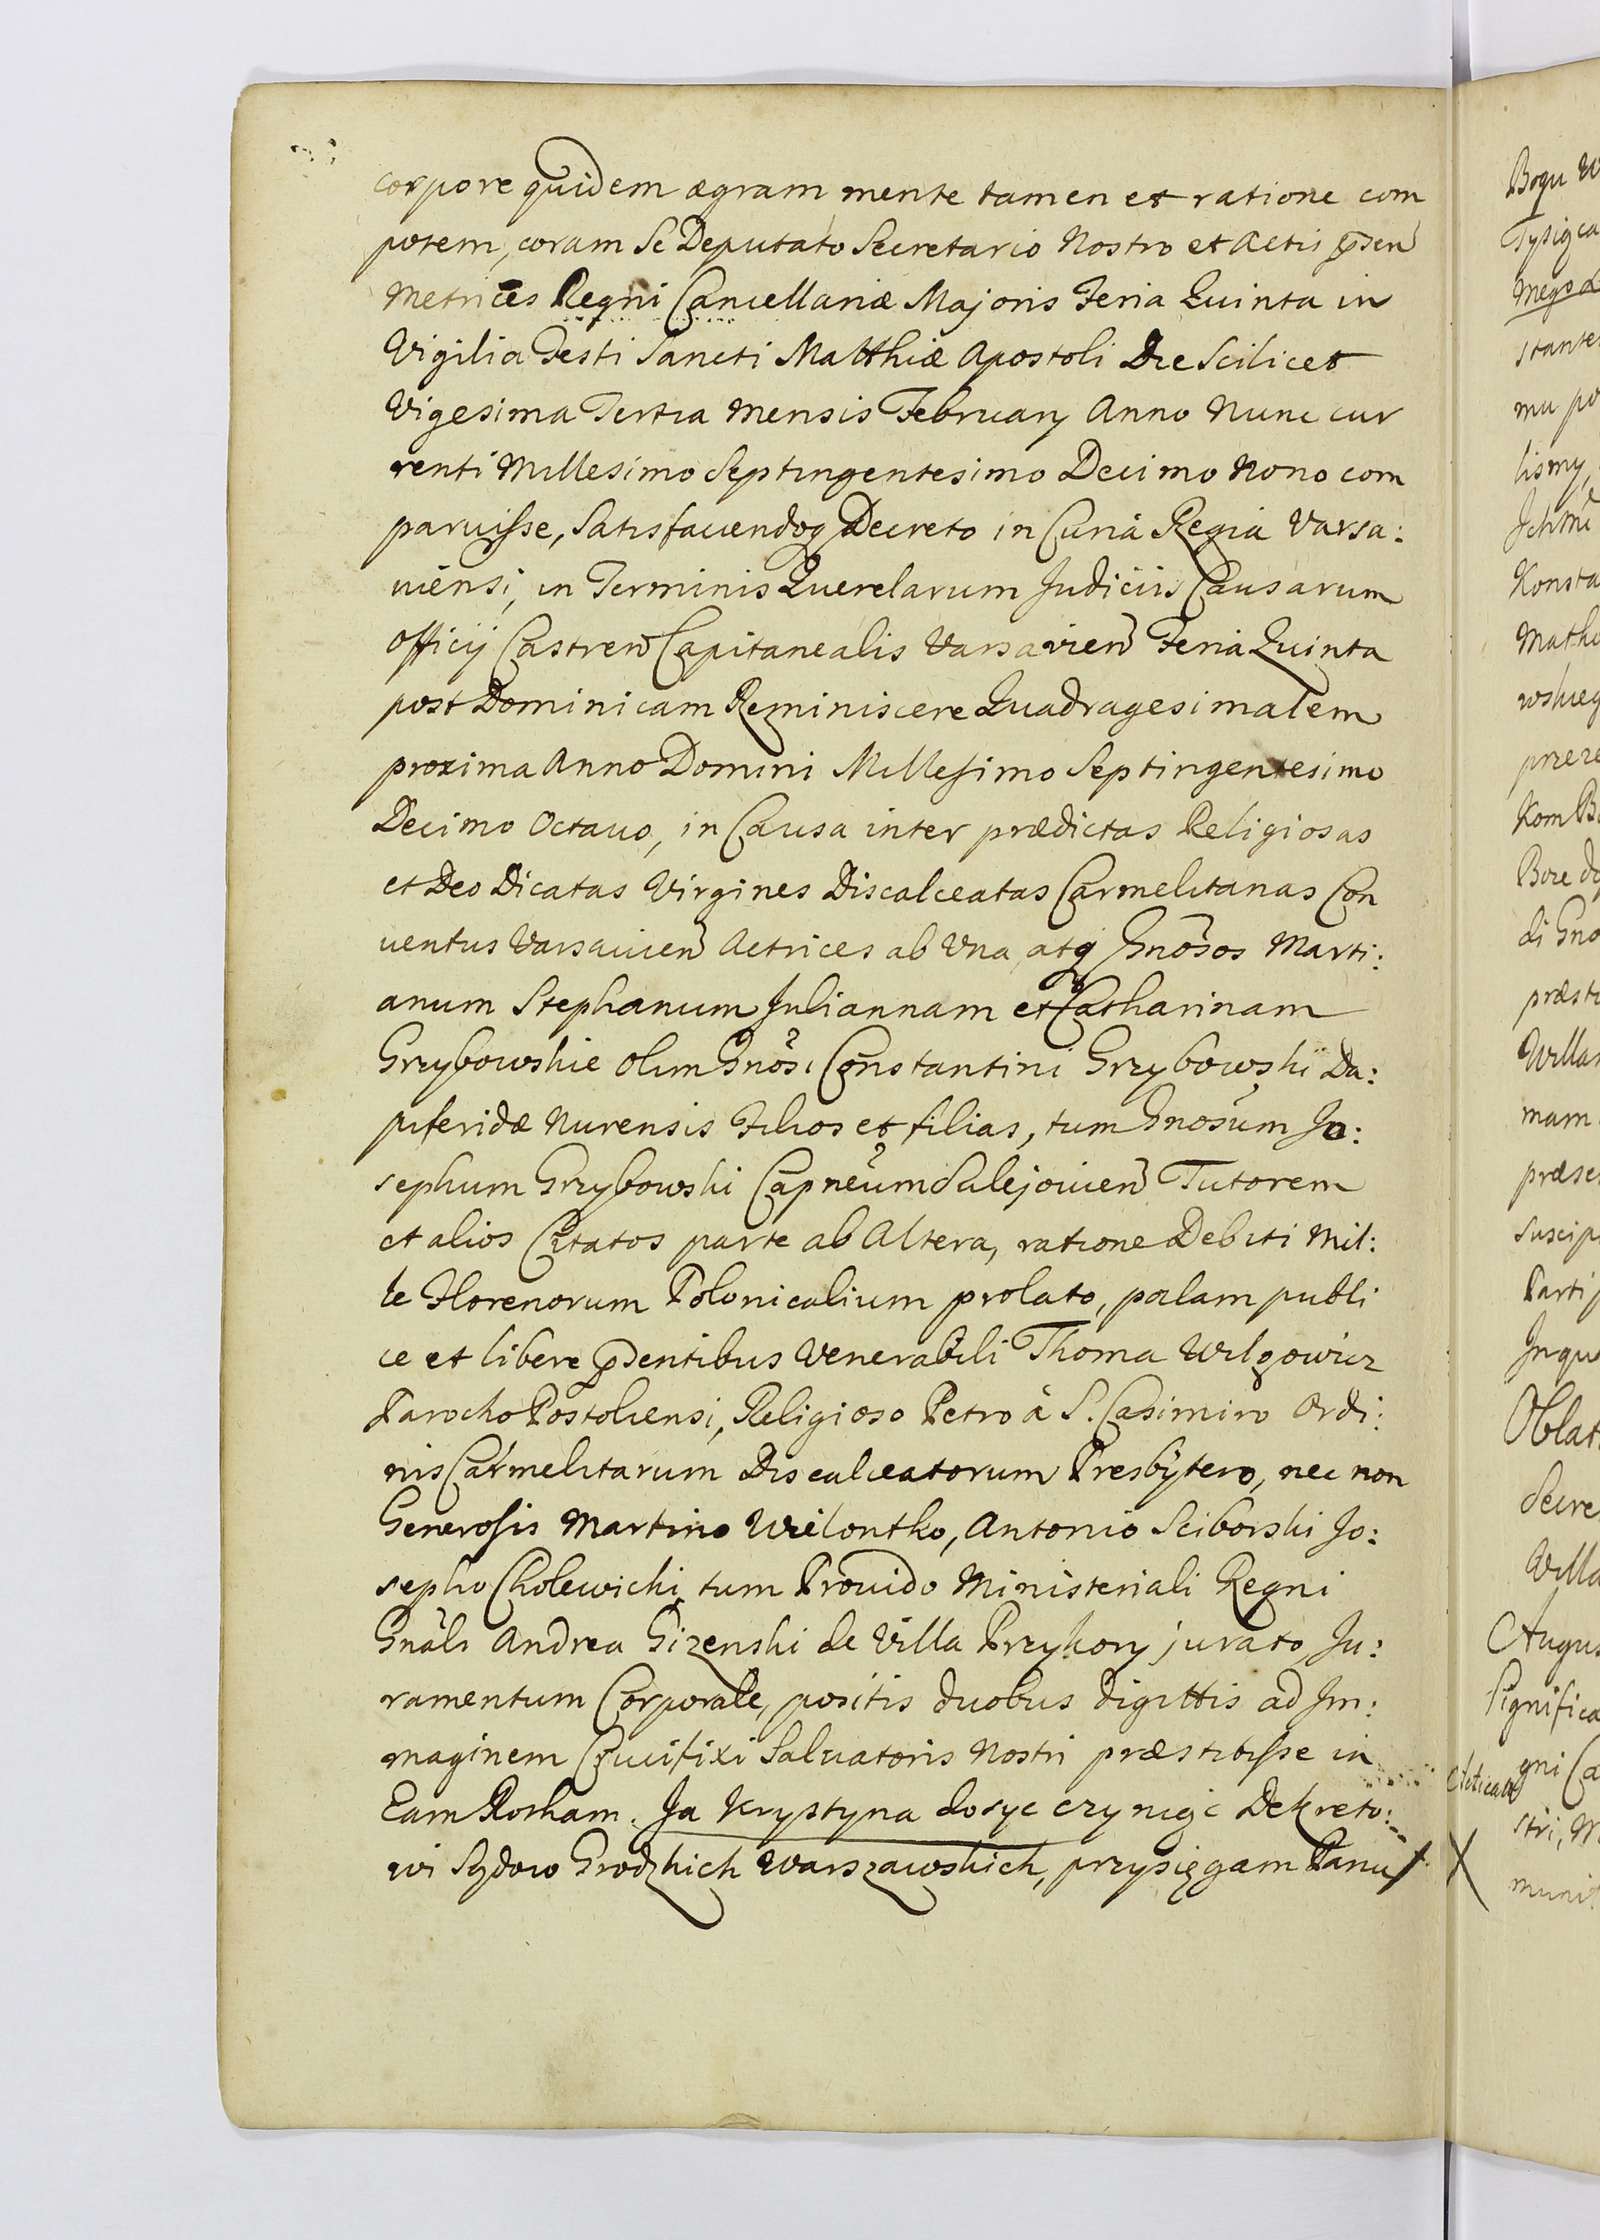 corpore quidem ægram mente tamen et ratione com
potem, coram Se Deputato Secretario Nostro et Actis p̃sen̄
Metrices Regni Cancellariæ Majoris Feria Quinta in
Vigilia Festi Sancti Matthiæ Apostoli Die Scilicet
Vigesima Tertia Mensis February Anno Nunc cur
renti Millesimo Septingentesimo Decimo Nono com
paruisse, Satisfaciendoq Decreto in Curiâ Regiâ Varsa:
viensi, in Terminis Querelarum Judiciis Causarum
Officij Castren̄ Capitanealis Varsavien̄ Feria Quinta
post Dominicam Reminiscere Quadragesimalem
proxima Anno Domini Millesimo Septingentesimo
Decimo Octavo, in Causa inter prædictas Religiosas
et Deo Dicatas Virgines Discalceatas Carmelitanas Con
ventus Varsavien̄ Actrices ab Una, atq Gnōsos Marti:
anum Stephanum Juliannam et Catharinam
Grzybowskie olim Gnōsi Constantini Grzybowski Da:
piferidæ Nurensis Filios et filias, tum Gnōsum Jo:
sephum Grzybowski Capnēum Sulejovien̄ Tutorem
et alios Citatos parte ab Altera, ratione Debiti Mil:
le Florenorum Polonicalium prolato, palam publi
ce et libere p̃sentibus Venerabili Thoma Wilgowicz
Parocho Postoliensi, Religioso Petro à S. Casimiro Ordi:
nis Carmelitarum Discalceatorum Presbytero, nec non
Generosis Martino Wielontko, Antonio Sciborski Jo:
sepho Cholewicki, tum Provido Ministeriali Regni
Gnāli Andrea Gizenski de Villa Przykory jurato, Ju:
ramentum Corporale, positis duobus digittis ad Im:
maginem Crucifixi Salvatoris Nostri præstitisse in
Eam Rotham. Ja Krystyna dosyc czyniąc Dekreto:
wi Sądow Grodzkich Warszawskich, przysięgam Panu
Bogu
Tysiąca
Mego
stante
mu po
lismy,
Konsta
przeze
Kom
di Gno
præst
Villa
mam
præse
suscip
Parti
Inqu
Oblat
Secre
Villa
Augus
Significa
gni Ca
stri, M
munit